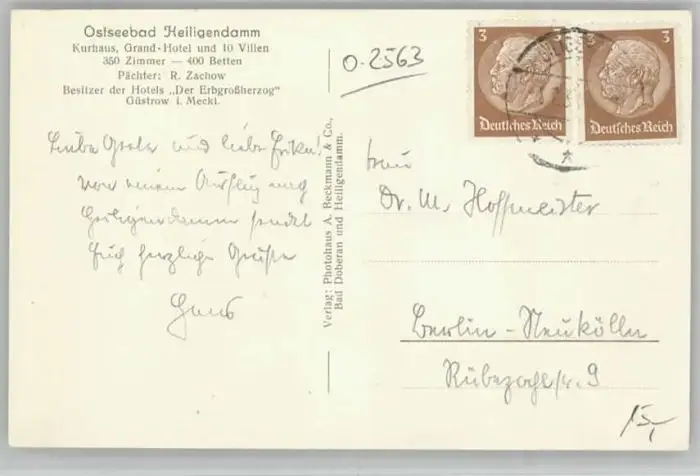 Ostseebad Heiligendamm
Kurhaus, Grand-Hotel und 10 Villen
350 Zimmer — 400 Betten
Pächter: R. Zachow
Besitzer der Hotels „Der Erbgroßherzog"
Güstrow i. Meckl.
0-2563
Liebe Grete und liebe Erika!
von einem Ausflug nach
Heiligendamm sendet
Euch herzliche Grüße
Hans
Verlag: Photohaus A. Beckmann & Co.,
Bad Doberan und Heiligendamm.
3
Deutsches Reich
3
Deutsches Reich
Frau
Dr. M. Hoffmeister
Berlin-Neukölln
Rübezahlstr. 9
15,